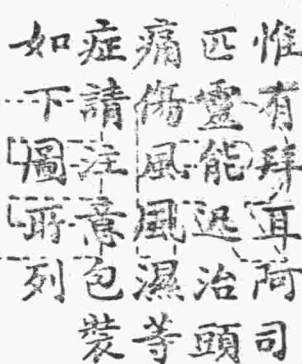 惟有拜耳阿司
匹靈能迅治頭
痛傷風風濕等
症請注意包裝
如下圖所列